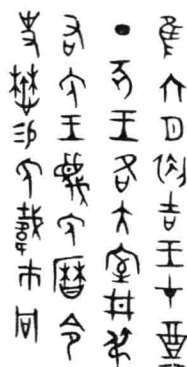 隹六月初吉王才奠
丁亥王各大室井弔
右免王蔑免曆令
史懋易免𢧜巿冋